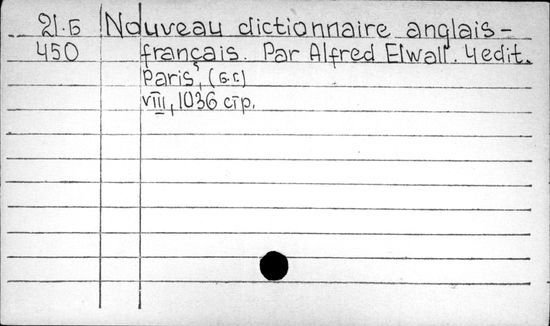 21.Б Nouveau dictionnaire anglais-
450 français. Par Alfred Elwall. 4 edit.
Paris, (б.г.)
VIII, 1036 стр.